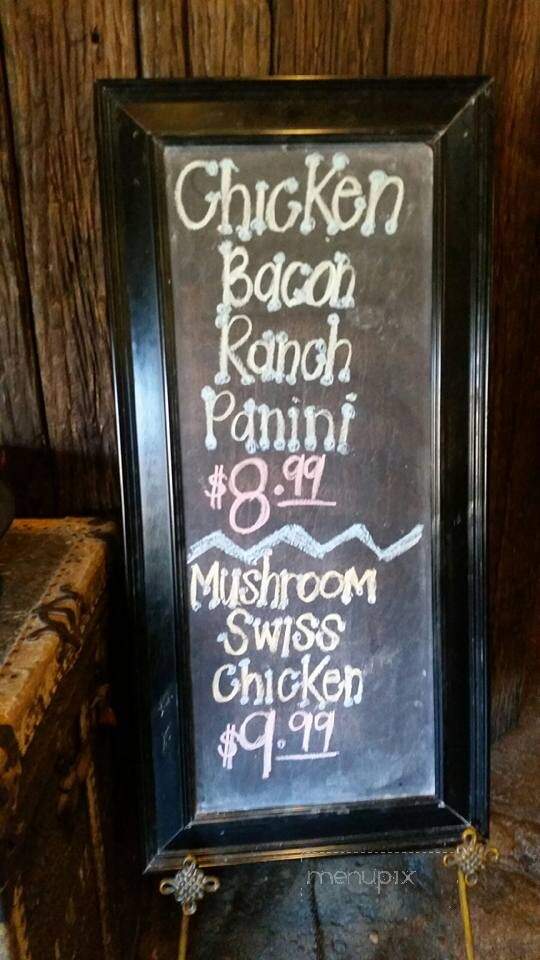 Chicken
Bacon
Ranch
Panini
$8.99
Mushroom
Swiss
Chicken
$9.99
menupix